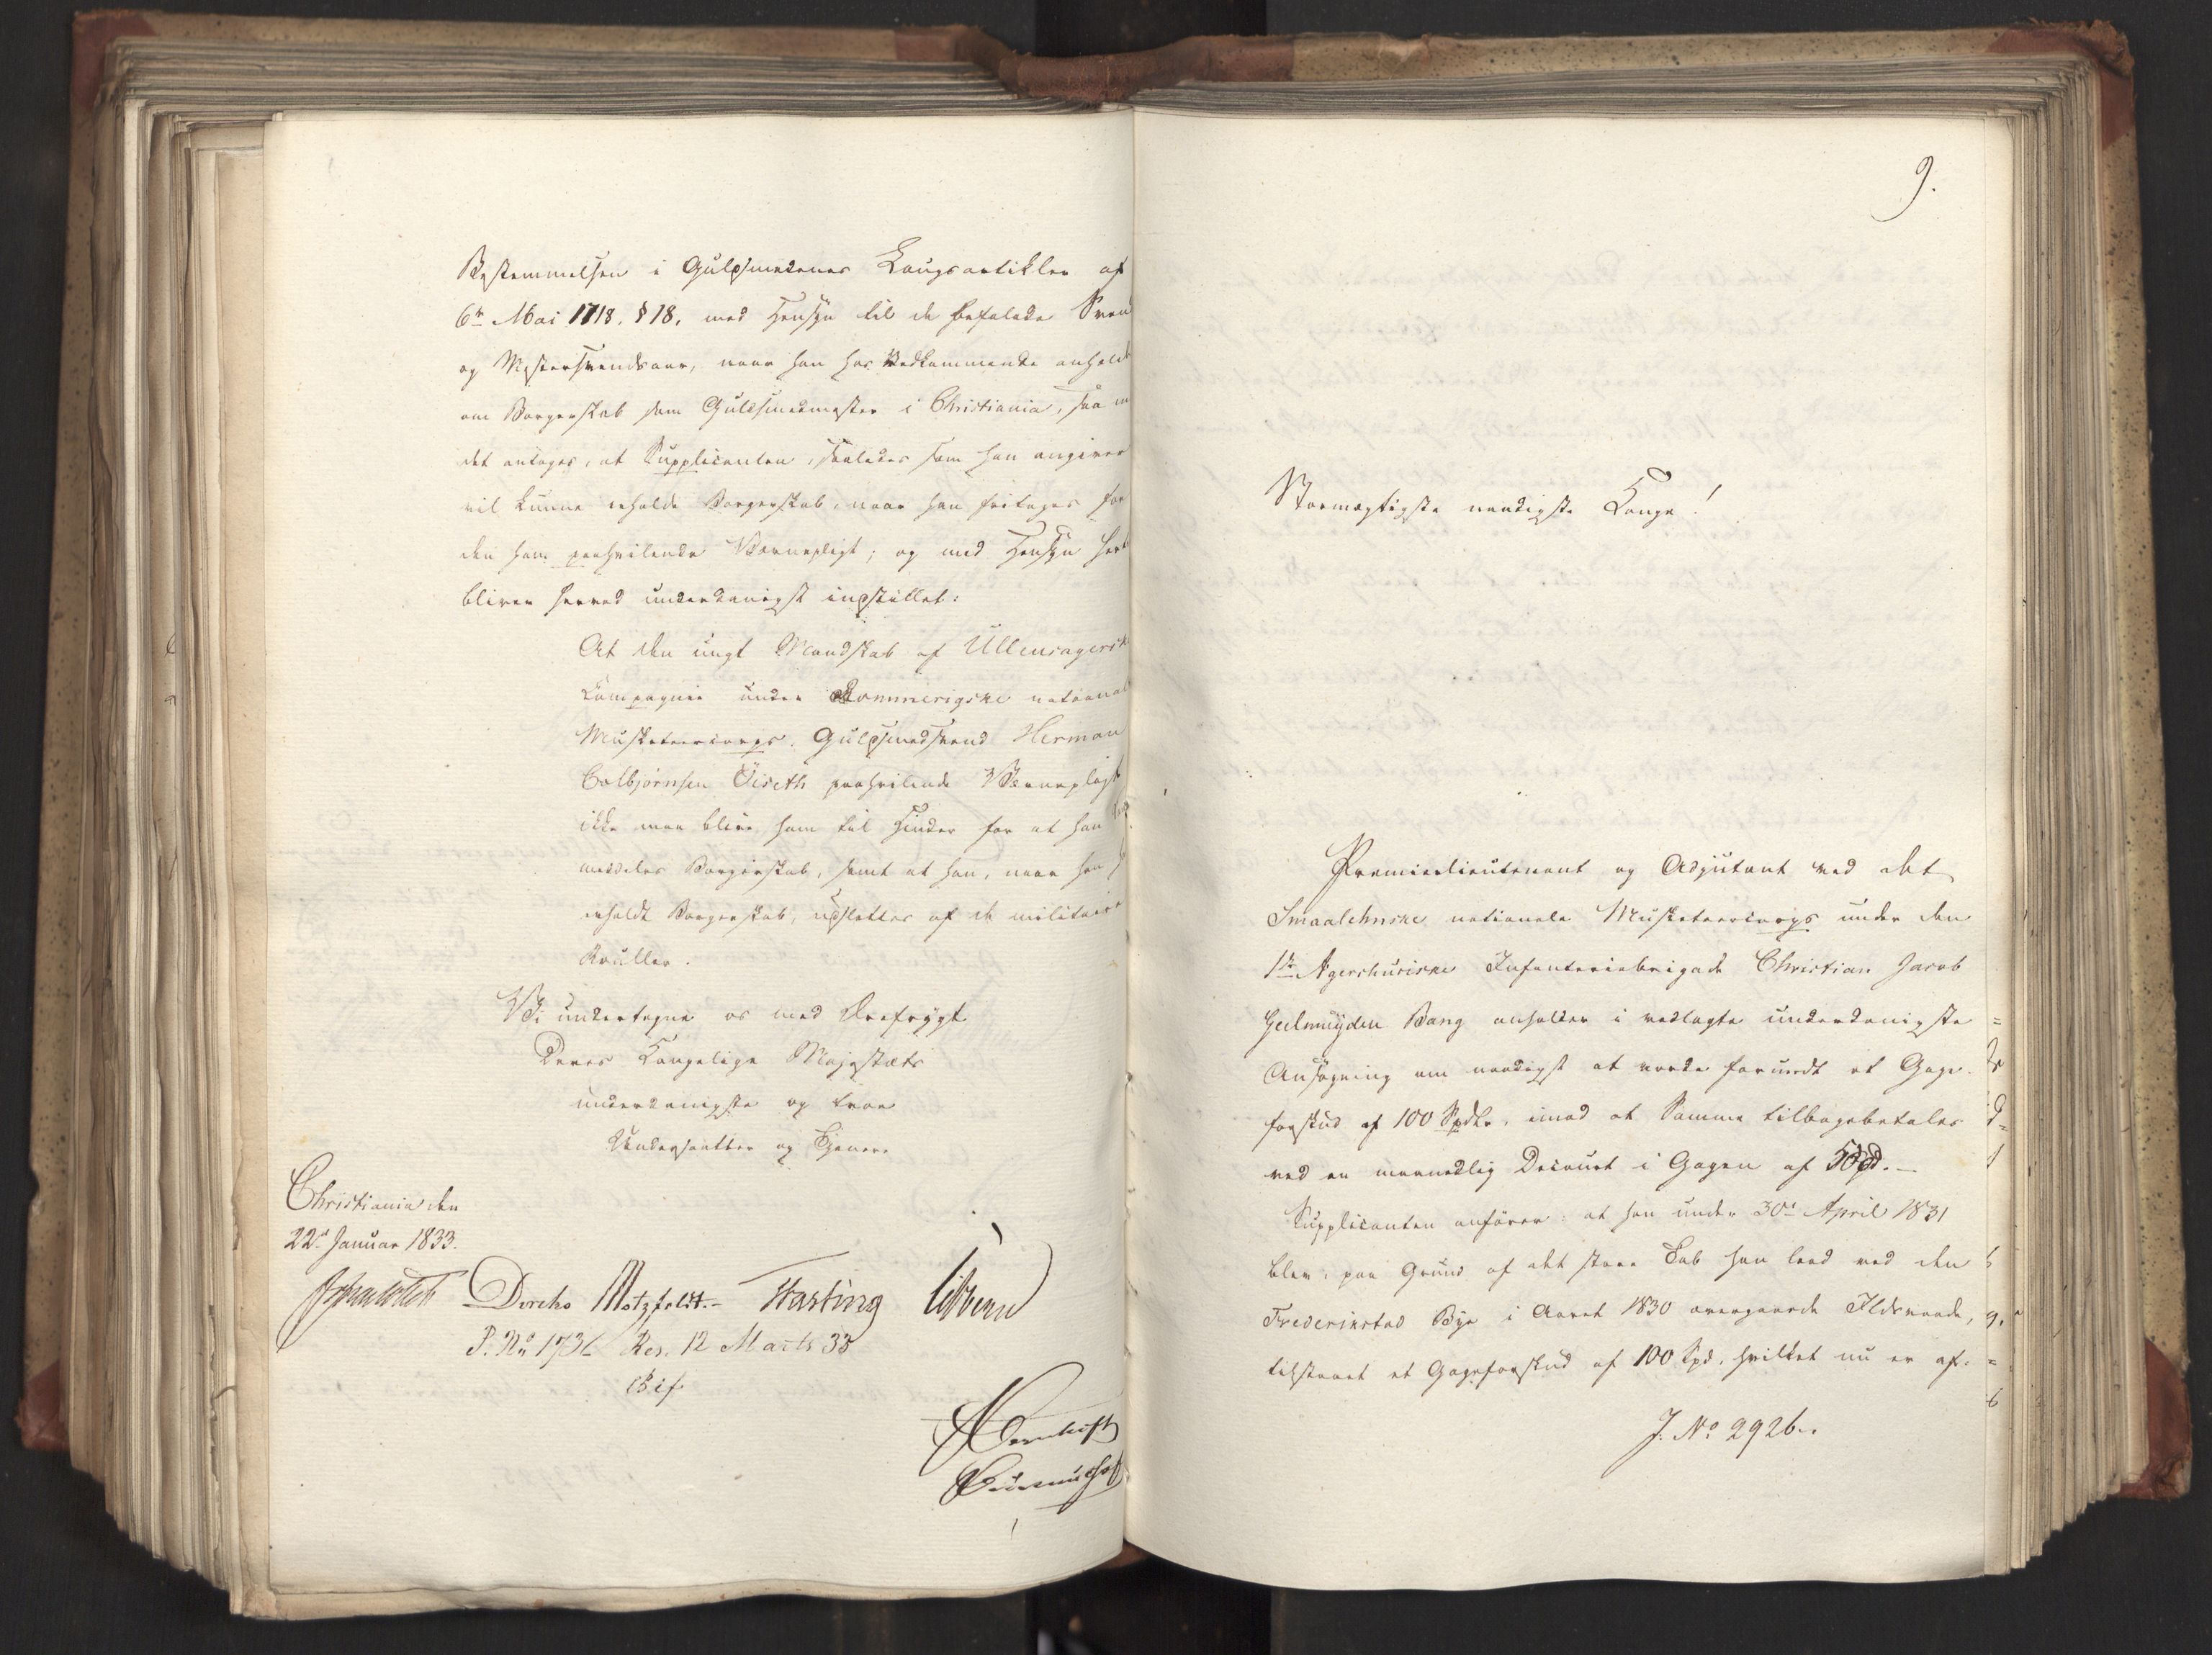 Bestemmelsen i Guldsmedenes Laugsartikler af
6te Mai 1718, § 18, med Hensyn til de befalede Svend
og Mestersvendsaar, naar han hos Vedkommende anholdt
om Borgerskab som Guldsmedmester i Christiania, saa
det antages, at Supplicanten, saaledes som han angiver
vil kunne erholde Borgerskab, naar han fritages for
den ham paahvilende Værnepligt; og med Hensyn
bliver herved underdanigst indstillet:
At den ungt Mandskab af Ullensagersk
Kompagnie under Rommerigske national
Musketeercorps, Guldsmedsvend Herman
Colbjørnsen Öiseth paahvilende Værnepligt
ikke maa blive ham til Hinder for at han
meddeles Borgerskab, samt at han, naar han
erholdt Borgerskab, udslettes af de militaire
Ruller.
Vi undertegne os med Ærefrygt
Deres Kongelige Majestæts
underdanigste og troe
Undersaatter og Tjenere
Christiania den
22d Januar 1833.
Motzfeldt.- Hasting
P. No 173 Res. 12 Marts 33
Bif
9.
Stormægtigste naadigste Konge!
Premierlieutenant og Adjutant ved det
Smaalehnske nationale Musketeercorps under den
1te Agershusiske Infanteriebrigade Christian Jacob
Geelmuyden Bang anholder i vedlagte underdanigste
Ansøgning om naadigst at vorde forundt et Gage-
forskud af 100 Spdlr, imod at Samme tilbagebetales
ved en maanedlig Decourt i Gagen af 5 Spd.-
Supplicanten anfører: at han under 30te April 1831
blev, paa Grund af det store Tab han leed ved den
Frederikstad Bye i Aaret 1830 overgaaede Ildsvaade,
tilstaaet et Gageforskud af 100 Spd, hvilket nu er af-
J. No 2926.